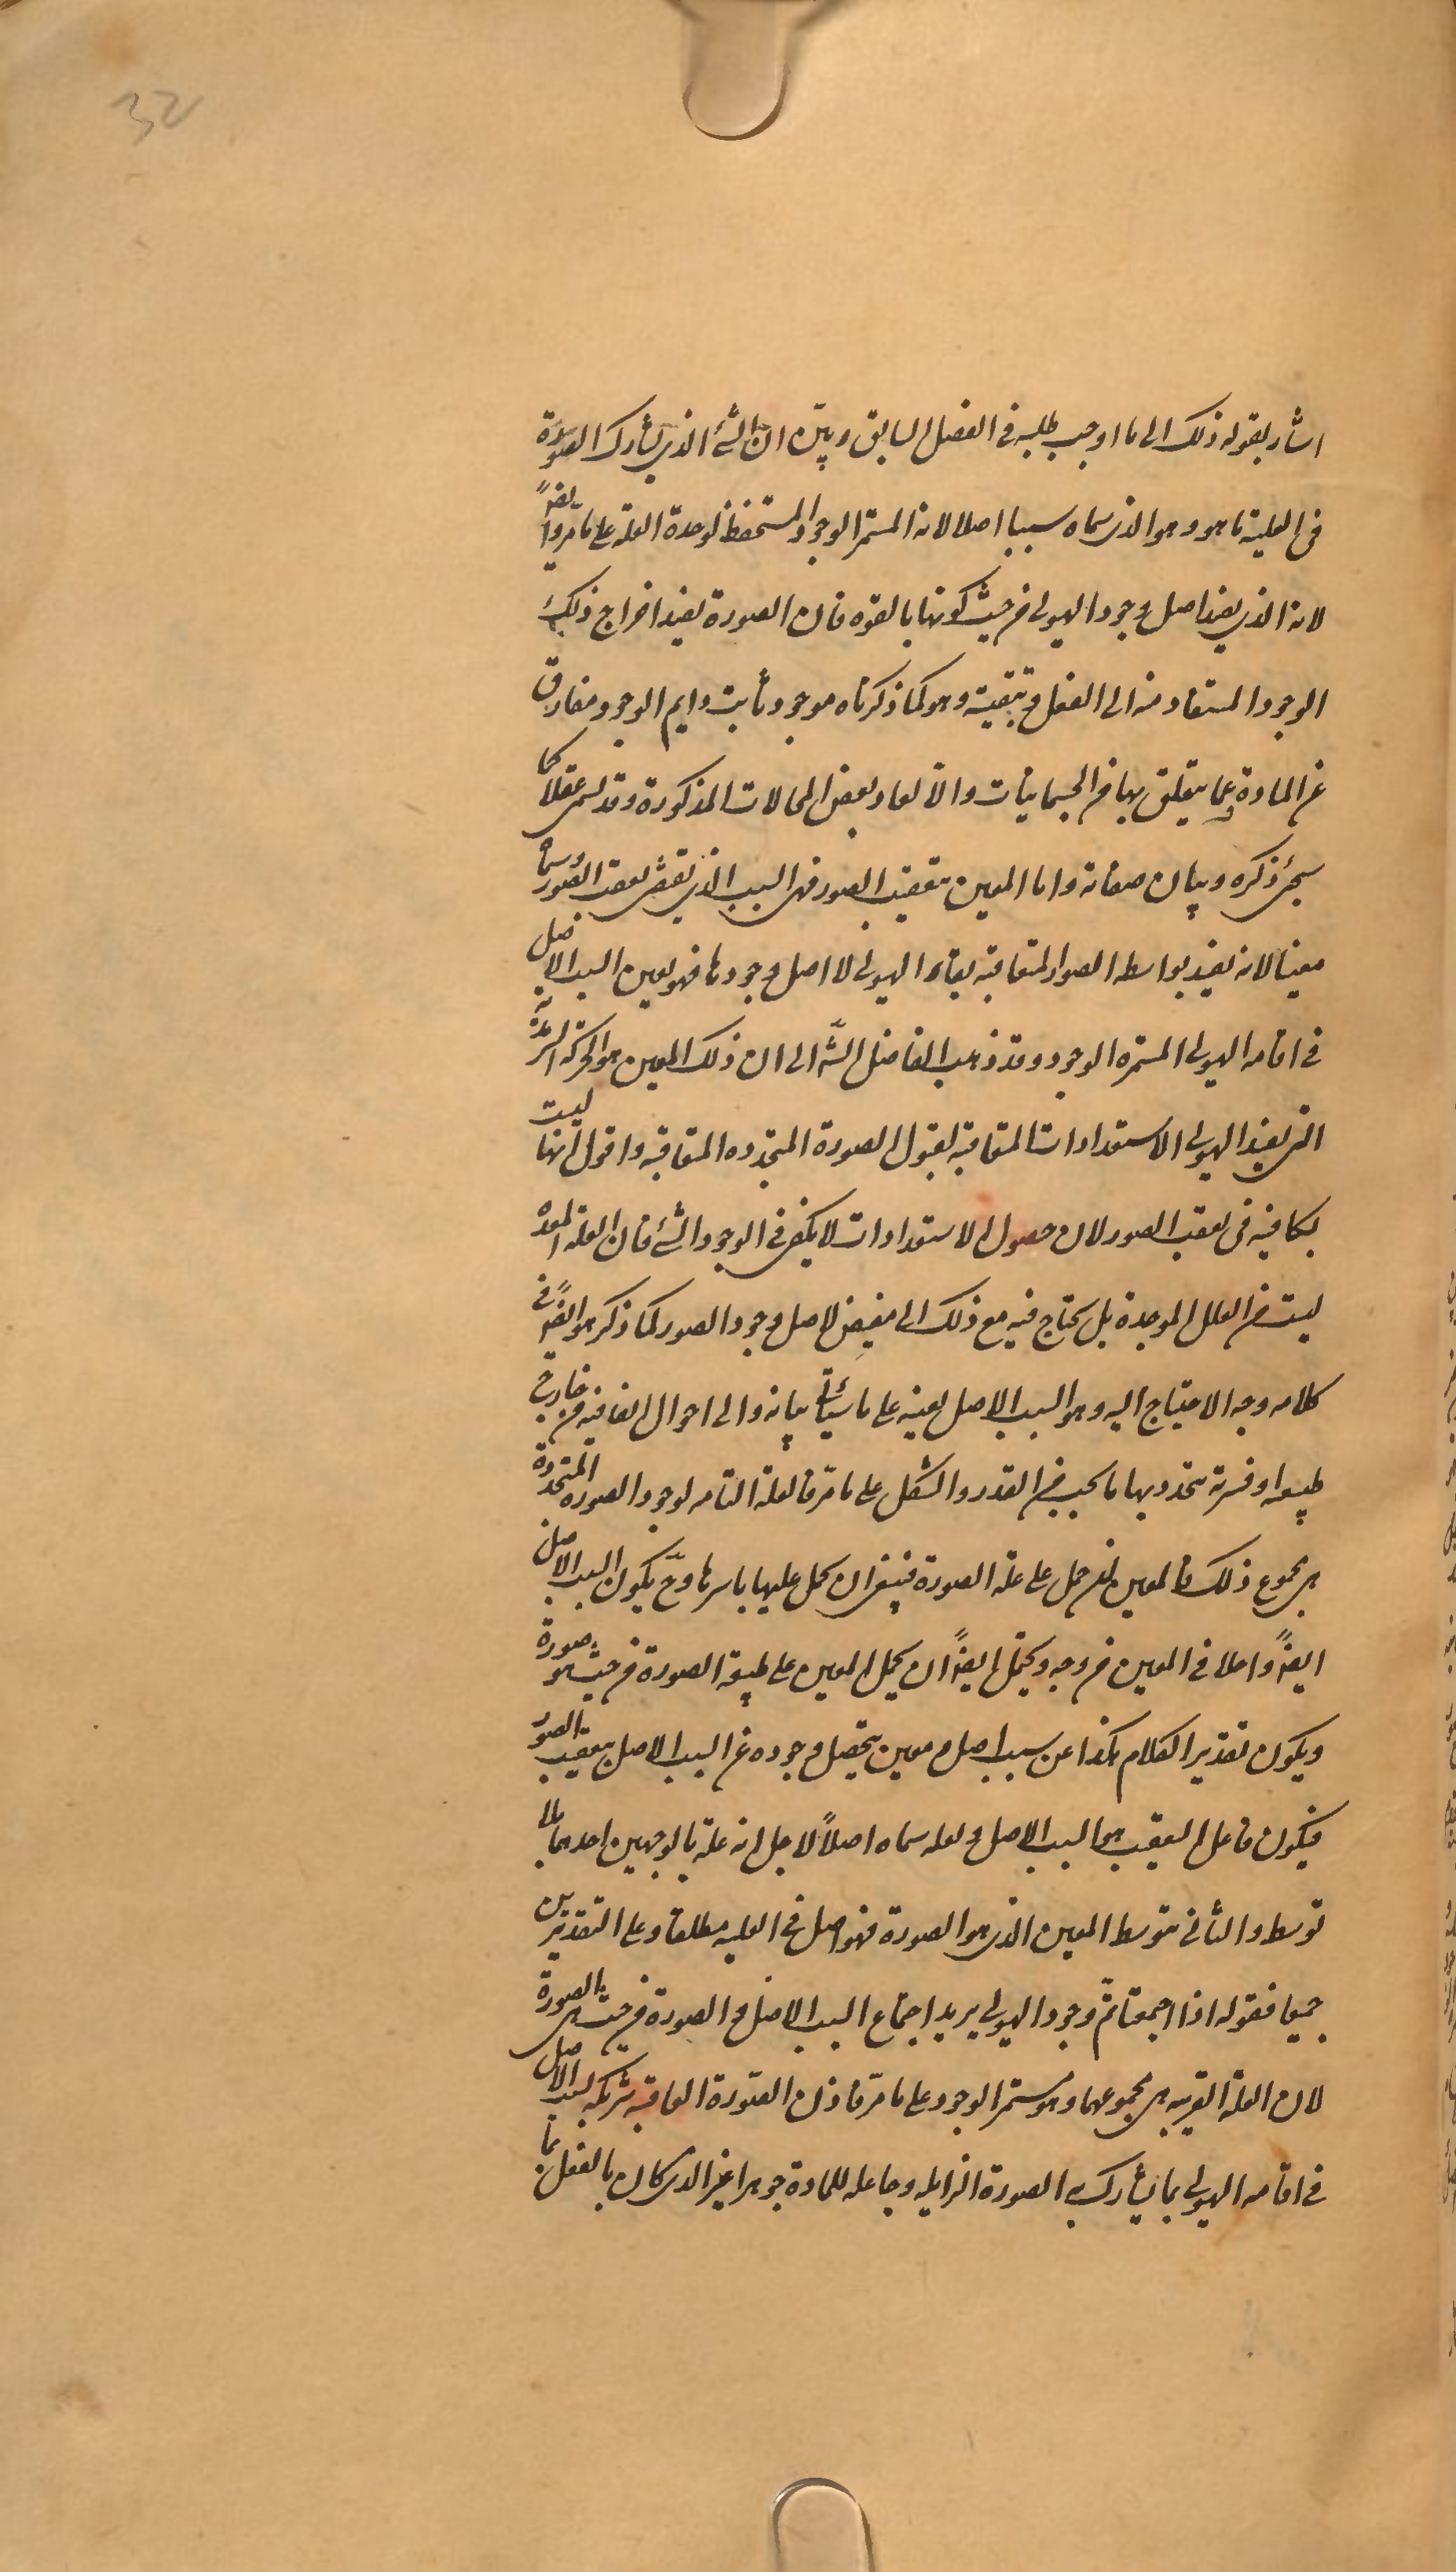 32
اشار بقوله ذلك الى ما اوجب طلبه فى الفصل السابق وبيّن ان الشئ الذى يشارك الصورة
فى العلية ما هو وهو الذى سماه سببا اصلا لانه المستمر الوجود المستحفظ لوحدة العلة على ما مرّ وايضاً
لانه الذى يفيد اصل وجود الهيولى من حيث كونها بالقوه فان الصورة يفيد اخراج ذلك
الوجود المستفاد منه الى الفعل و تبقيته وهو كما ذكرناه موجود ثابت دايم الوجود مفارق
عن المادة وعما يتعلق بها من الجسمانيات والا لعاد بعض المحالات المذكورة وقد يسمى عقلا كما
سيجئ ذكره وبيان صفاته واما المعين بتعقيب الصور فهى السبب الذى يقتضى تعقب الصور وسماه
معينا لانه يفيد بواسطه الصور المتعاقبه بقاء الهيولى لا اصل وجودها فهو يعين السبب الاصل
فى اقامه الهيولى المستمره الوجود وقد ذهب الفاضل الشّه الى ان ذلك المعين هو الحركه السرمدية
التى يفيد الهيولى الاستعدادات المتعاقبه لقبول الصورة المتجدده المتعاقبه واقول انها ليست
بكافيه فى تعقب الصور لان حصول الاستعدادات لا يكفى فى الوجود الشئ فان العلة المعده
ليست من العلل الموجدة بل يحتاج فيه مع ذلك الى مفيض لاصل وجود الصور كما ذكر هو ايضاً فى
كلامه وجه الاحتياج اليه وهو السبب الاصل بعينه على ما سيأتى بيانه والى احوال اتفاقيه من خارج
طبيعه او قسرية يتحدد بها ما يجب من القدر والشكل على ما مرّ فالعلة التامه لوجود الصوره المتجددة
هى مجموع ذلك فالمعين ان حمل على علة الصورة فينبغى ان يحمل عليها باسرها وحّ يكون السبب الاصل
ايضاً داخلا فى المعين من وجه ويحتمل ايضاً ان يحمل المعين على طبيعة الصورة من حيث هو صورة
ويكون تقدير الكلام هكذا عن سبب اصل و معين يتحصل وجوده عن السبب الاصل بتعقيب الصور
فيكون فاعل التعقيب هو السبب الاصل و لعله سماه اصلاً لاجل انه علة بالوجهين احدهما بلا
توسط والثانى بتوسط المعين الذى هو الصورة فهو اصل فى العليه مطلقا وعلى التقديرين
جميعا فقوله اذا اجتمعتا تمّ وجود الهيولى يريد اجتماع السبب الاصل والصورة من حيث هى الصورة
لان العلة القريبه هى مجموعهما وهو مستمر الوجود على ما مرّ فاذن الصّورة العاقبه شريكه لسبب الاصل
فى اقامه الهيولى بما يشارك به الصورة الزايله وجاعله للمادة جوهرا غير الذى كان بالفعل بما